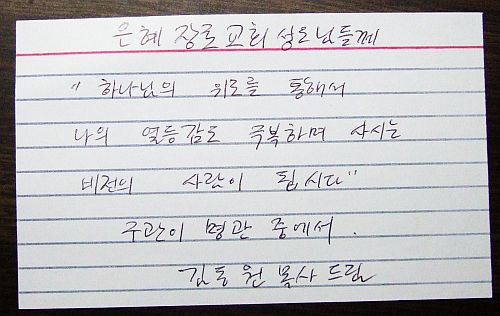 은혜 장로 교회 성도님들께
"하나님의 위로를 통해서
나의 열등감도 극복하며 사시는
비전의 사람이 됩시다"
구관이 명관 중에서.
김동원 목사 드림